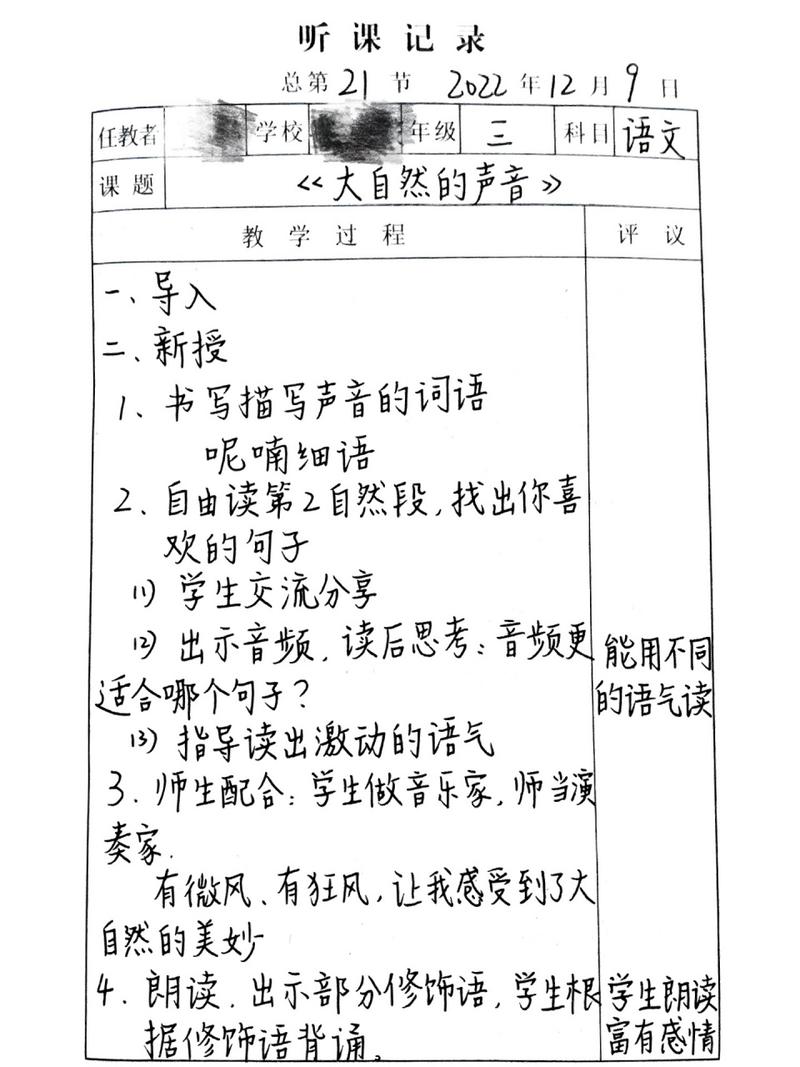 听课记录
总第21节 2022年12月9日
任教者 学校 年级 三 科目 语文
课题 《大自然的声音》
教学过程 评议
一、导入
二、新授
1、书写描写声音的词语
呢喃细语
2、自由读第2自然段,找出你喜
欢的句子
(1) 学生交流分享
(2) 出示音频,读后思考:音频更
适合哪个句子?
(3) 指导读出激动的语气
3.师生配合:学生做音乐家,师当演
奏家.
有微风、有狂风,让我感受到了大
自然的美妙
4.朗读.出示部分修饰语,学生根
据修饰语背诵。
能用不同
的语气读
学生朗读
富有感情